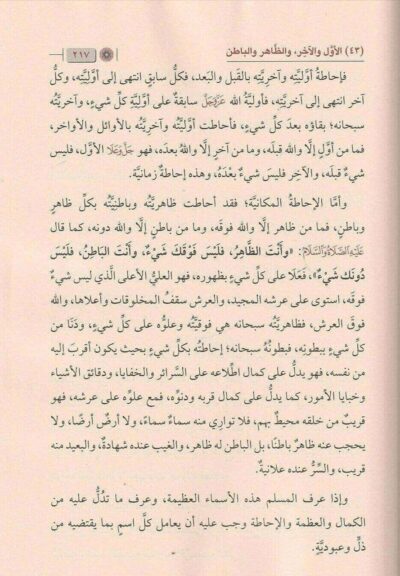 (٤٣) الأوَّل والآخِر، والظَّاهر والباطن
٢١٧
فإحاطةُ أوَّليَّتِه وآخريَّتِه بالقَبل والبَعد، فكلُّ سابقٍ انتهى إلى أوَّليَّتِه، وكلُّ
آخر انتهى إلى آخريَّتِه، فأوليةُ الله عَزَّوَجَلَّ سابقةٌ على أوَّليَّةِ كلِّ شيءٍ، وآخريَّتُه
سبحانه؛ بقاؤه بعدَ كلِّ شيءٍ، فأحاطت أوليَّتُه وآخريَّتُه بالأوائل والأواخر،
فما من أوَّلٍ إلَّا والله قبلَه، وما من آخرٍ إلَّا والله بعدَه، فهو جَلَّوَعَلَا الأوَّل، فليس
شيءٌ قبلَه، والآخِر فليسَ شيءٌ بعْدَهُ، وهذه إحاطةٌ زمانيَّة.
وأمَّا الإحاطةُ المكانيَّة؛ فقد أحاطت ظاهريَّتُه وباطنيَّتُه بكلِّ ظاهرٍ
وباطنٍ، فما من ظاهر إلَّا والله فوقَه، وما من باطن إلَّا والله دونه، كما قال
عَلَيْهِ الصَّلَاةُ وَالسَّلَامُ: «وأَنْتَ الظَّاهِرُ، فلَيْسَ فَوْقَكَ شَيْءٌ، وأَنْتَ البَاطِنُ، فلَيْسَ
دُونَك شَيْءٌ»، فَعَلَا على كلِّ شيءٍ بظهوره، فهو العليُّ الأعلى الَّذي ليس شيءٌ
فوقَه، استوى على عرشه المجيد، والعرش سقفُ المخلوقات وأعلاها، والله
فوق العرش، فظاهريَّتُه سبحانه هي فوقيَّتُه وعلوُّه على كلِّ شيءٍ، ودَنَا من
كلِّ شيءٍ ببطونِه، فبطونُهُ سبحانه؛ إحاطتُه بكلِّ شيءٍ بحيث يكون أقربَ إليه
من نفسه، فهو يدلُّ على كمال اطِّلاعه على السَّرائر والخفايا، ودقائق الأشياء
وخبايا الأمور، كما يدلُّ على كمال قربه ودنوِّه، فمع علوِّه على عرشه، فهو
قريبٌ من خلقه محيطٌ بهم، فلا تواري منه سماءٌ سماءً، ولا أرضٌ أرضًا، ولا
يحجب عنه ظاهرٌ باطنًا، بل الباطن له ظاهر، والغيب عنده شهادةٌ، والبعيد منه
قريب، والسِّرُّ عنده علانيةٌ.
وإذا عرف المسلم هذه الأسماء العظيمة، وعرف ما تدُلُّ عليه من
الكمال والعظمة والإحاطة وجب عليه أن يعامل كلَّ اسمٍ بما يقتضيه من
ذلٍّ وعبوديَّةٍ.